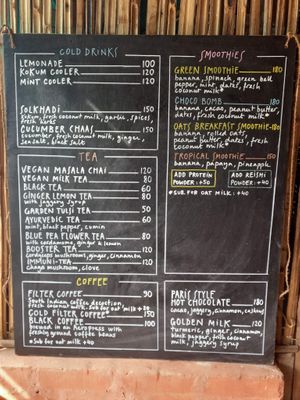 COLD DRINKS
LEMONADE 100
KOKUM COOLER 120
MINT COOLER 120
SOLKHADI 150
fresh coconut milk, garlic, spices,
fresh herbs
CUCUMBER CHAAS 150
Cucumber, fresh coconut milk, ginger,
sea salt, black salt
TEA
VEGAN MASALA CHAI 120
VEGAN MILK TEA 80
BLACK TEA 60
GINGER LEMON TEA 80
with jaggery syrup
GARDEN TULSI TEA 50
AYURVEDIC TEA 60
mint, black pepper, cumin
BLUE PEA FLOWER TEA 80
with cardamome, ginger & lemon
BOOSTER TEA 120
Cordyceps mushroom, ginger, cinnamon
IMMUNI-TEA 120
Chaga mushroom, clove
COFFEE
FILTER COFFEE 90
South Indian coffee decoction,
fresh coconut milk *Sub for oat milk +30
COLD FILTER COFFEE 150
BLACK COFFEE 100
brewed in an Aeropress with
freshly ground coffee beans
*Sub for oat milk +40
SMOOTHIES
GREEN SMOOTHIE 180
banana, spinach, green bell
pepper, mint, dates, fresh
coconut milk*
CHOCO BOMB 180
banana, cacao, peanut butter,
dates, fresh coconut milk*
OATS BREAKFAST SMOOTHIE-180
banana, rolled oats,
peanut butter, dates, fresh
coconut milk*
TROPICAL SMOOTHIE 150
banana, papaya, pineapple
ADD PROTEIN
POWDER +50
ADD REISHI
POWDER +40
*SUB FOR OAT MILK: +40
PARIS STYLE
HOT CHOCOLATE 180
cacao, jaggery, cinnamon, cashews
GOLDEN MILK 120
turmeric, ginger, cinnamon,
black pepper, fresh coconut
milk, jaggery syrup